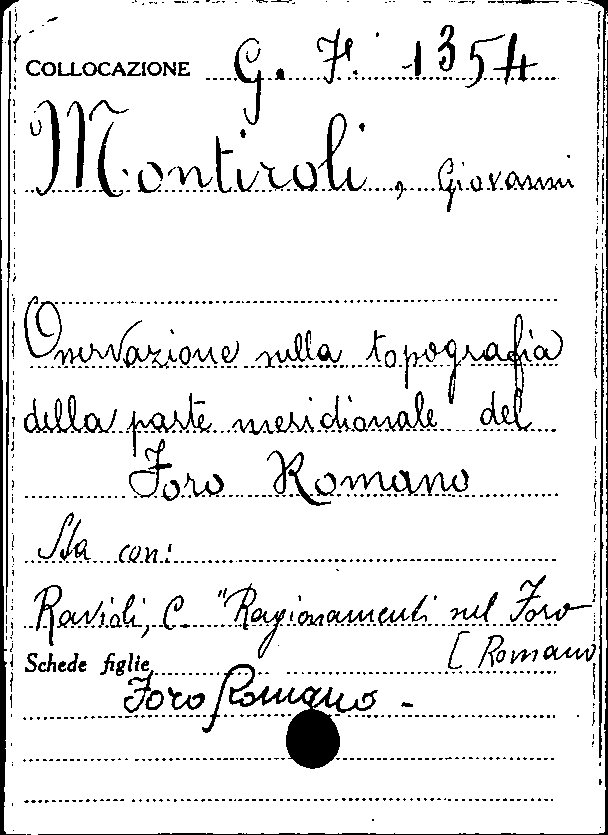 COLLOCAZIONE G. F. 1354
Montiroli, Giovanni
Osservazione sulla topografia
della parte meridionale del
Foro Romano
Sta con:
Ravioli, C. "Ragionamenti sul Foro
[Romano
Schede figlie
Foro Romano -